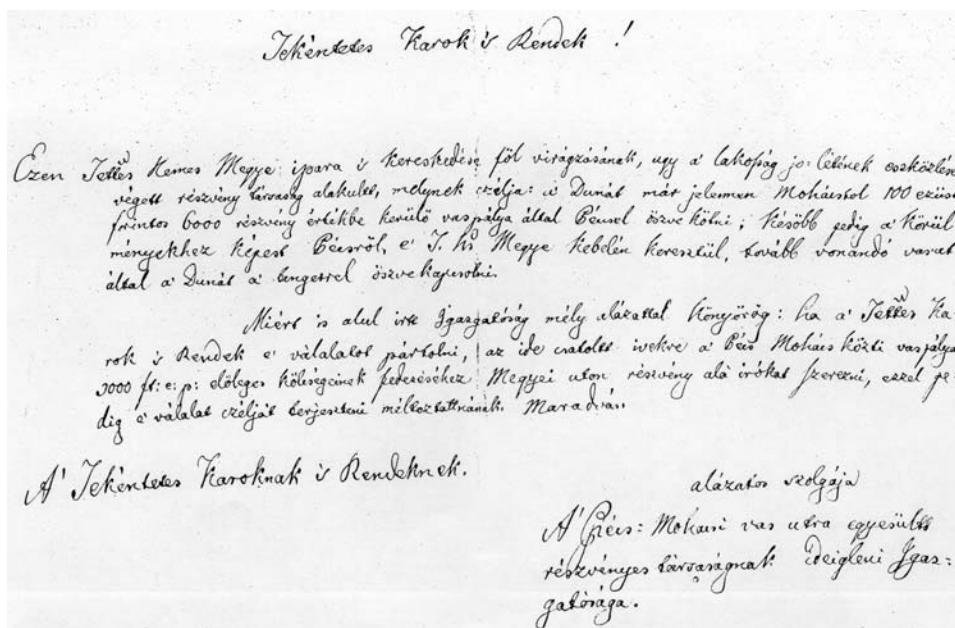 Tekéntetes Karok és Rendek !
Ezen Tettes Nemes Megye ipara 's kereskedése föl virágzásának, ugy a' lakosság jo-létének eszközlése
végett részvény társaság alakult, melynek czélja: a' Dunát már jelennen Moháestol 100 ezüst
frintos 6000 részvény értékbe kerülő vaspálya által Pécsel öszve kötni; később pedig a' körül
ményekhez képest Pécsről, e' T. Ns Megye kebelén keresztül, tovább vonandó vasut
által a' Dunát a' tengerrel öszvekapcsolni.
Miért is alul irtt Igazgatóság mély alázattal könyörög: ha a' Tettes Ka-
rok 's Rendek e' válalatot pártolni, az ide csatoltt ivekre a' Pécs Mohács közti vaspálya
3000 ft: e: p: előleges költségeinek fedezéséhez Megyei uton, részvény alá irókat szerezni, ezzel pe-
dig e' válalat czélját terjeszteni méltoztatnának. Maradván.
A' Tekéntetes Karoknak és Rendeknek.
alázatos szolgája
A' Pécs: Mohácsi vas utra egyesültt
részvényes társaságnak ideigleni Igaz:
gatósága.